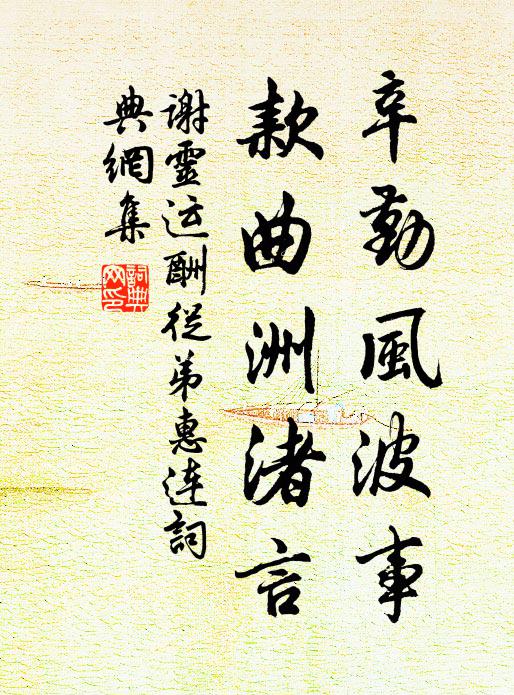 辛勤風波事
款曲洲渚言
謝靈运酬從弟惠连詞
典網集
詞典网印